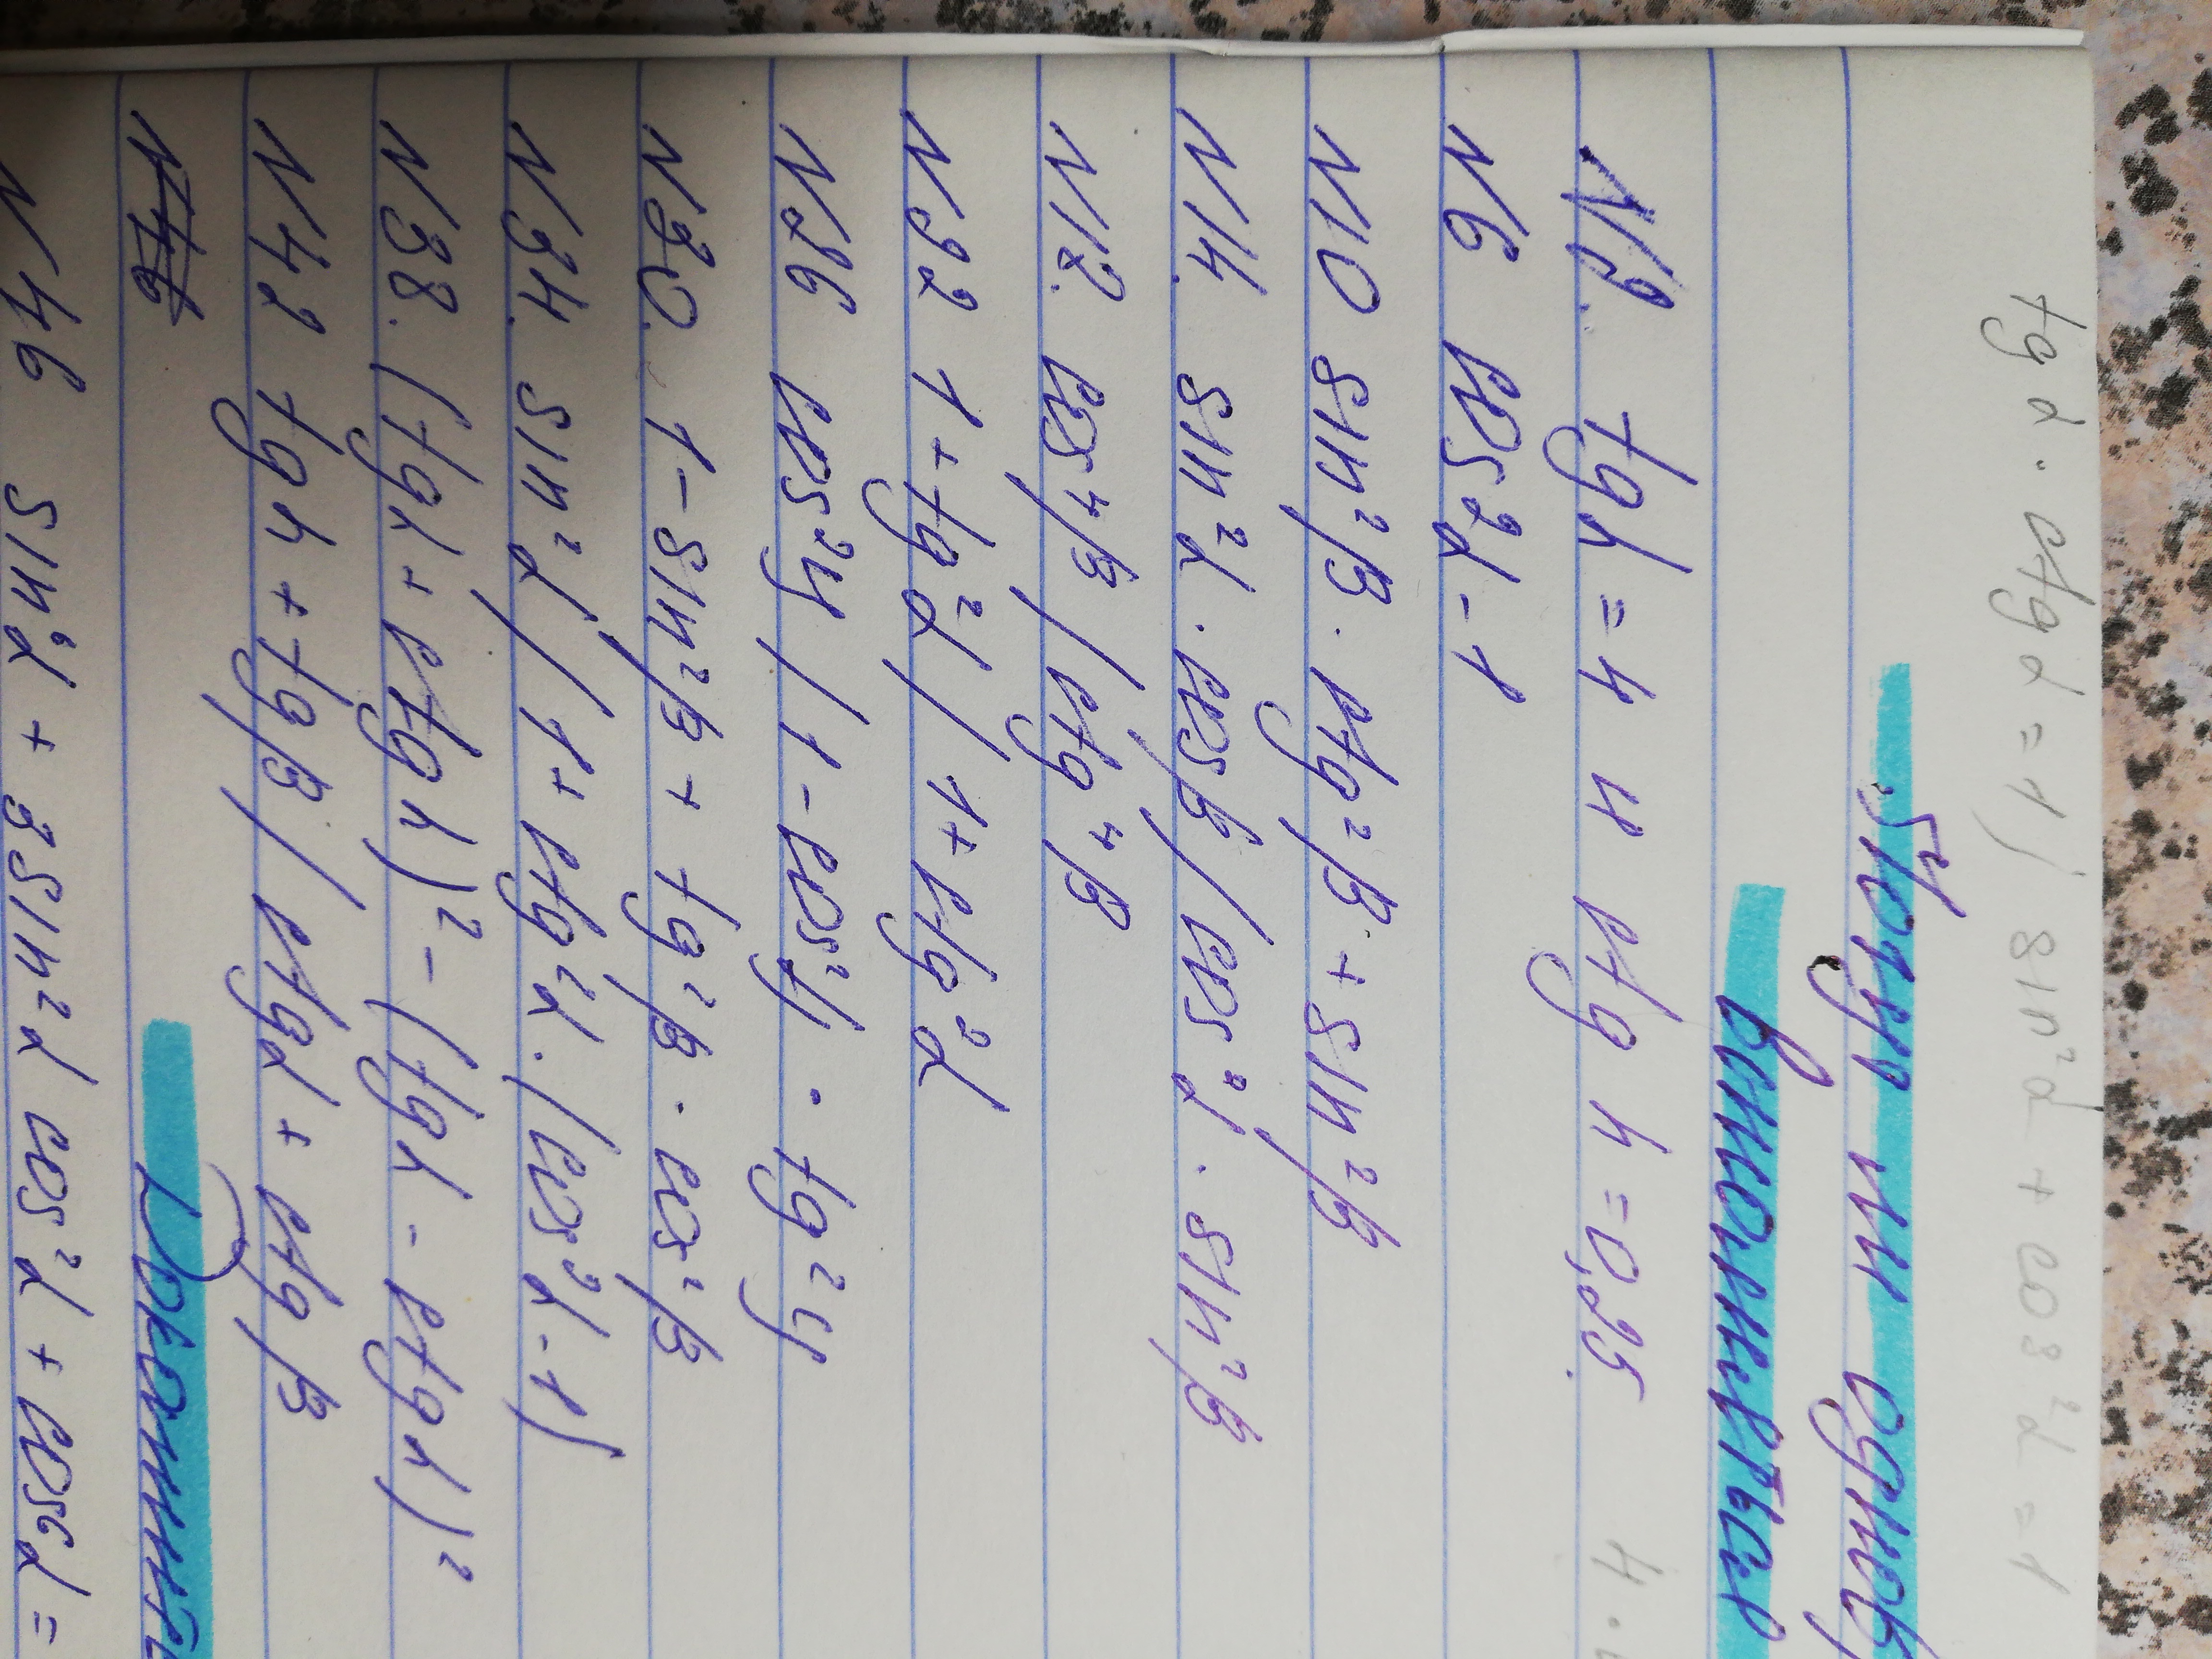 tg α · ctg α = 1 / sin²α + cos²α = 1
Могут ли одноврем
выполняться
N2. tg α = 4 и ctg α = 0,25.
N6 cos²α - 1
N10 sin²β · ctg²β + sin²β
N14. sin²α · cosβ / cos²α · sin²β
N18. cos⁴β / ctg⁴β
N22 1 + tg²α / 1 + ctg²α
N26 cos²y / 1 - cos²y · tg²y
N30. 1 - sin²β + tg²β · cos²β
N34. sin²α / 1 + ctg²α · (cos²α - 1)
N38. (tgα + ctgα)² - (tgα - ctgα)²
N42 tgα + tgβ / ctgα + ctgβ
N46 sin⁶α + 3 sin²α cos²α + cos⁶α =